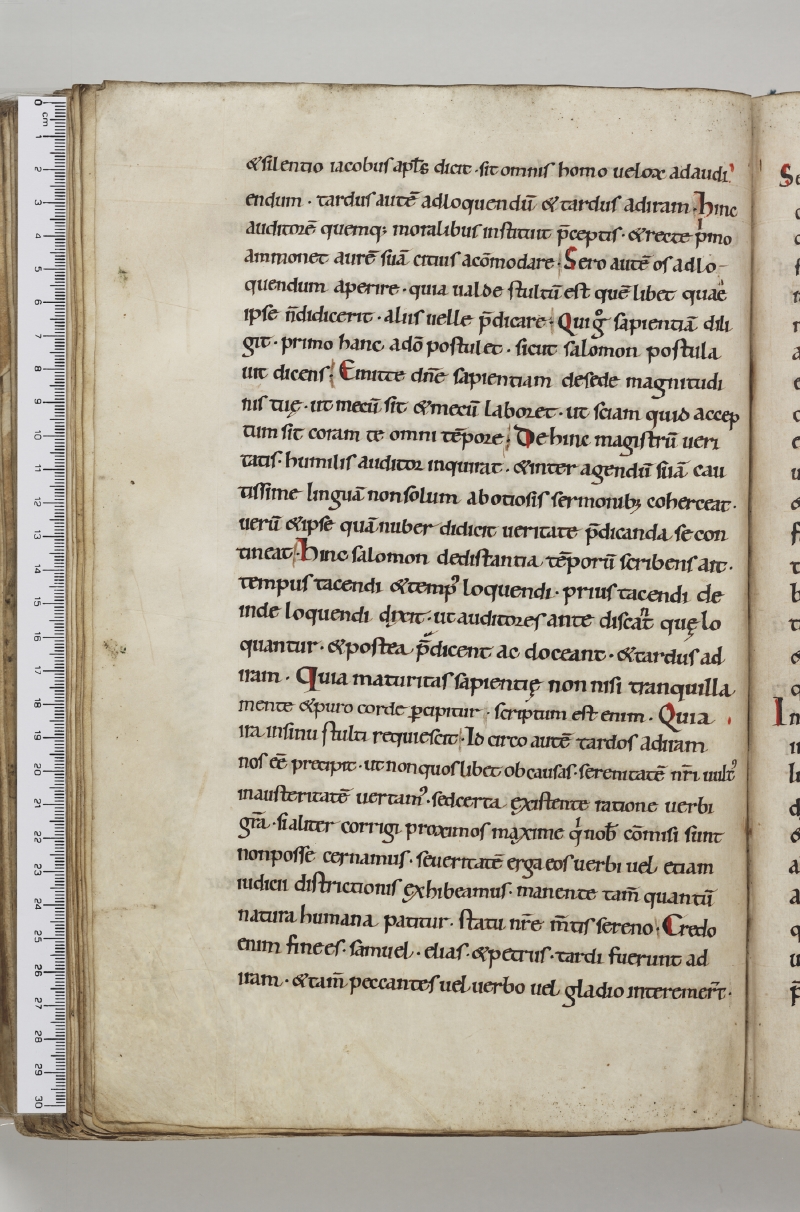 &silentio iacobus apłs dicit · sit omnis homo uelox adaudi
endum · tardus autē adloquendū & tardus adiram · hinc
auditorē quemq; moralibus instituit p̄ceptis · & recte pⁱmo
ammonet aurē suā citius acōmodare · Sero autē os adlo-
quendum aperire · quia ualde stultū est quēlibet quae
ipse n̄didicerit · aliis uelle p̄dicare · Quig̊ sapientiā dili
git · primo hanc adō postulet · sicut salomon postula
uit dicens · Emitte dn̄e sapientiam desede magnitudi
nis tuę · ut mecū sit & mecū laboret · ut sciam quid accep
tum sit coram te omni tēpore · Dehinc magistrū ueri
tatis · humilis auditor inquirat · & inter agendū suā cau
tissime linguā nonsolum abotiosis sermonib; coherceat ·
uerū & ipse quā nuber didicit ueritate p̄dicanda se con
tineat · Hinc salomon dedistantia tēporū scribens ait ·
tempus tacendi & temp᾿ loquendi · prius tacendi de
inde loquendi dixit · ut auditores ante discāt quę lo
quantur · & postea p̄dicent ac doceant · & tardus ad
iram · Quia maturitas sapientię non nisi tranquilla
mente & puro corde ꝑcipitur · scriptum est enim · Quia
ira insinu stulti requiescit · Id circo autē tardos adiram
nos eē precipit · ut non quoslibet ob causas · serenitatē nr̄i uult᾿
inausteritatē uertam᾿ · sed certa existente ratione uerbi
gr̄a · si aliter corrigi proximos maxime qⁱ nob̄ cōmisi sunt
nonposse cernamus · seueritatē erga eos uerbi uel etiam
iudicii districtionis exhibeamus · manente tam̄ quantū
natura humana patitur · statu nr̄e m̄tis sereno · Credo
enim finees · samuel · elias · & petrus · tardi fuerunt ad
iram · & tam̄ peccantes uel uerbo uel gladio interemer̄t ·